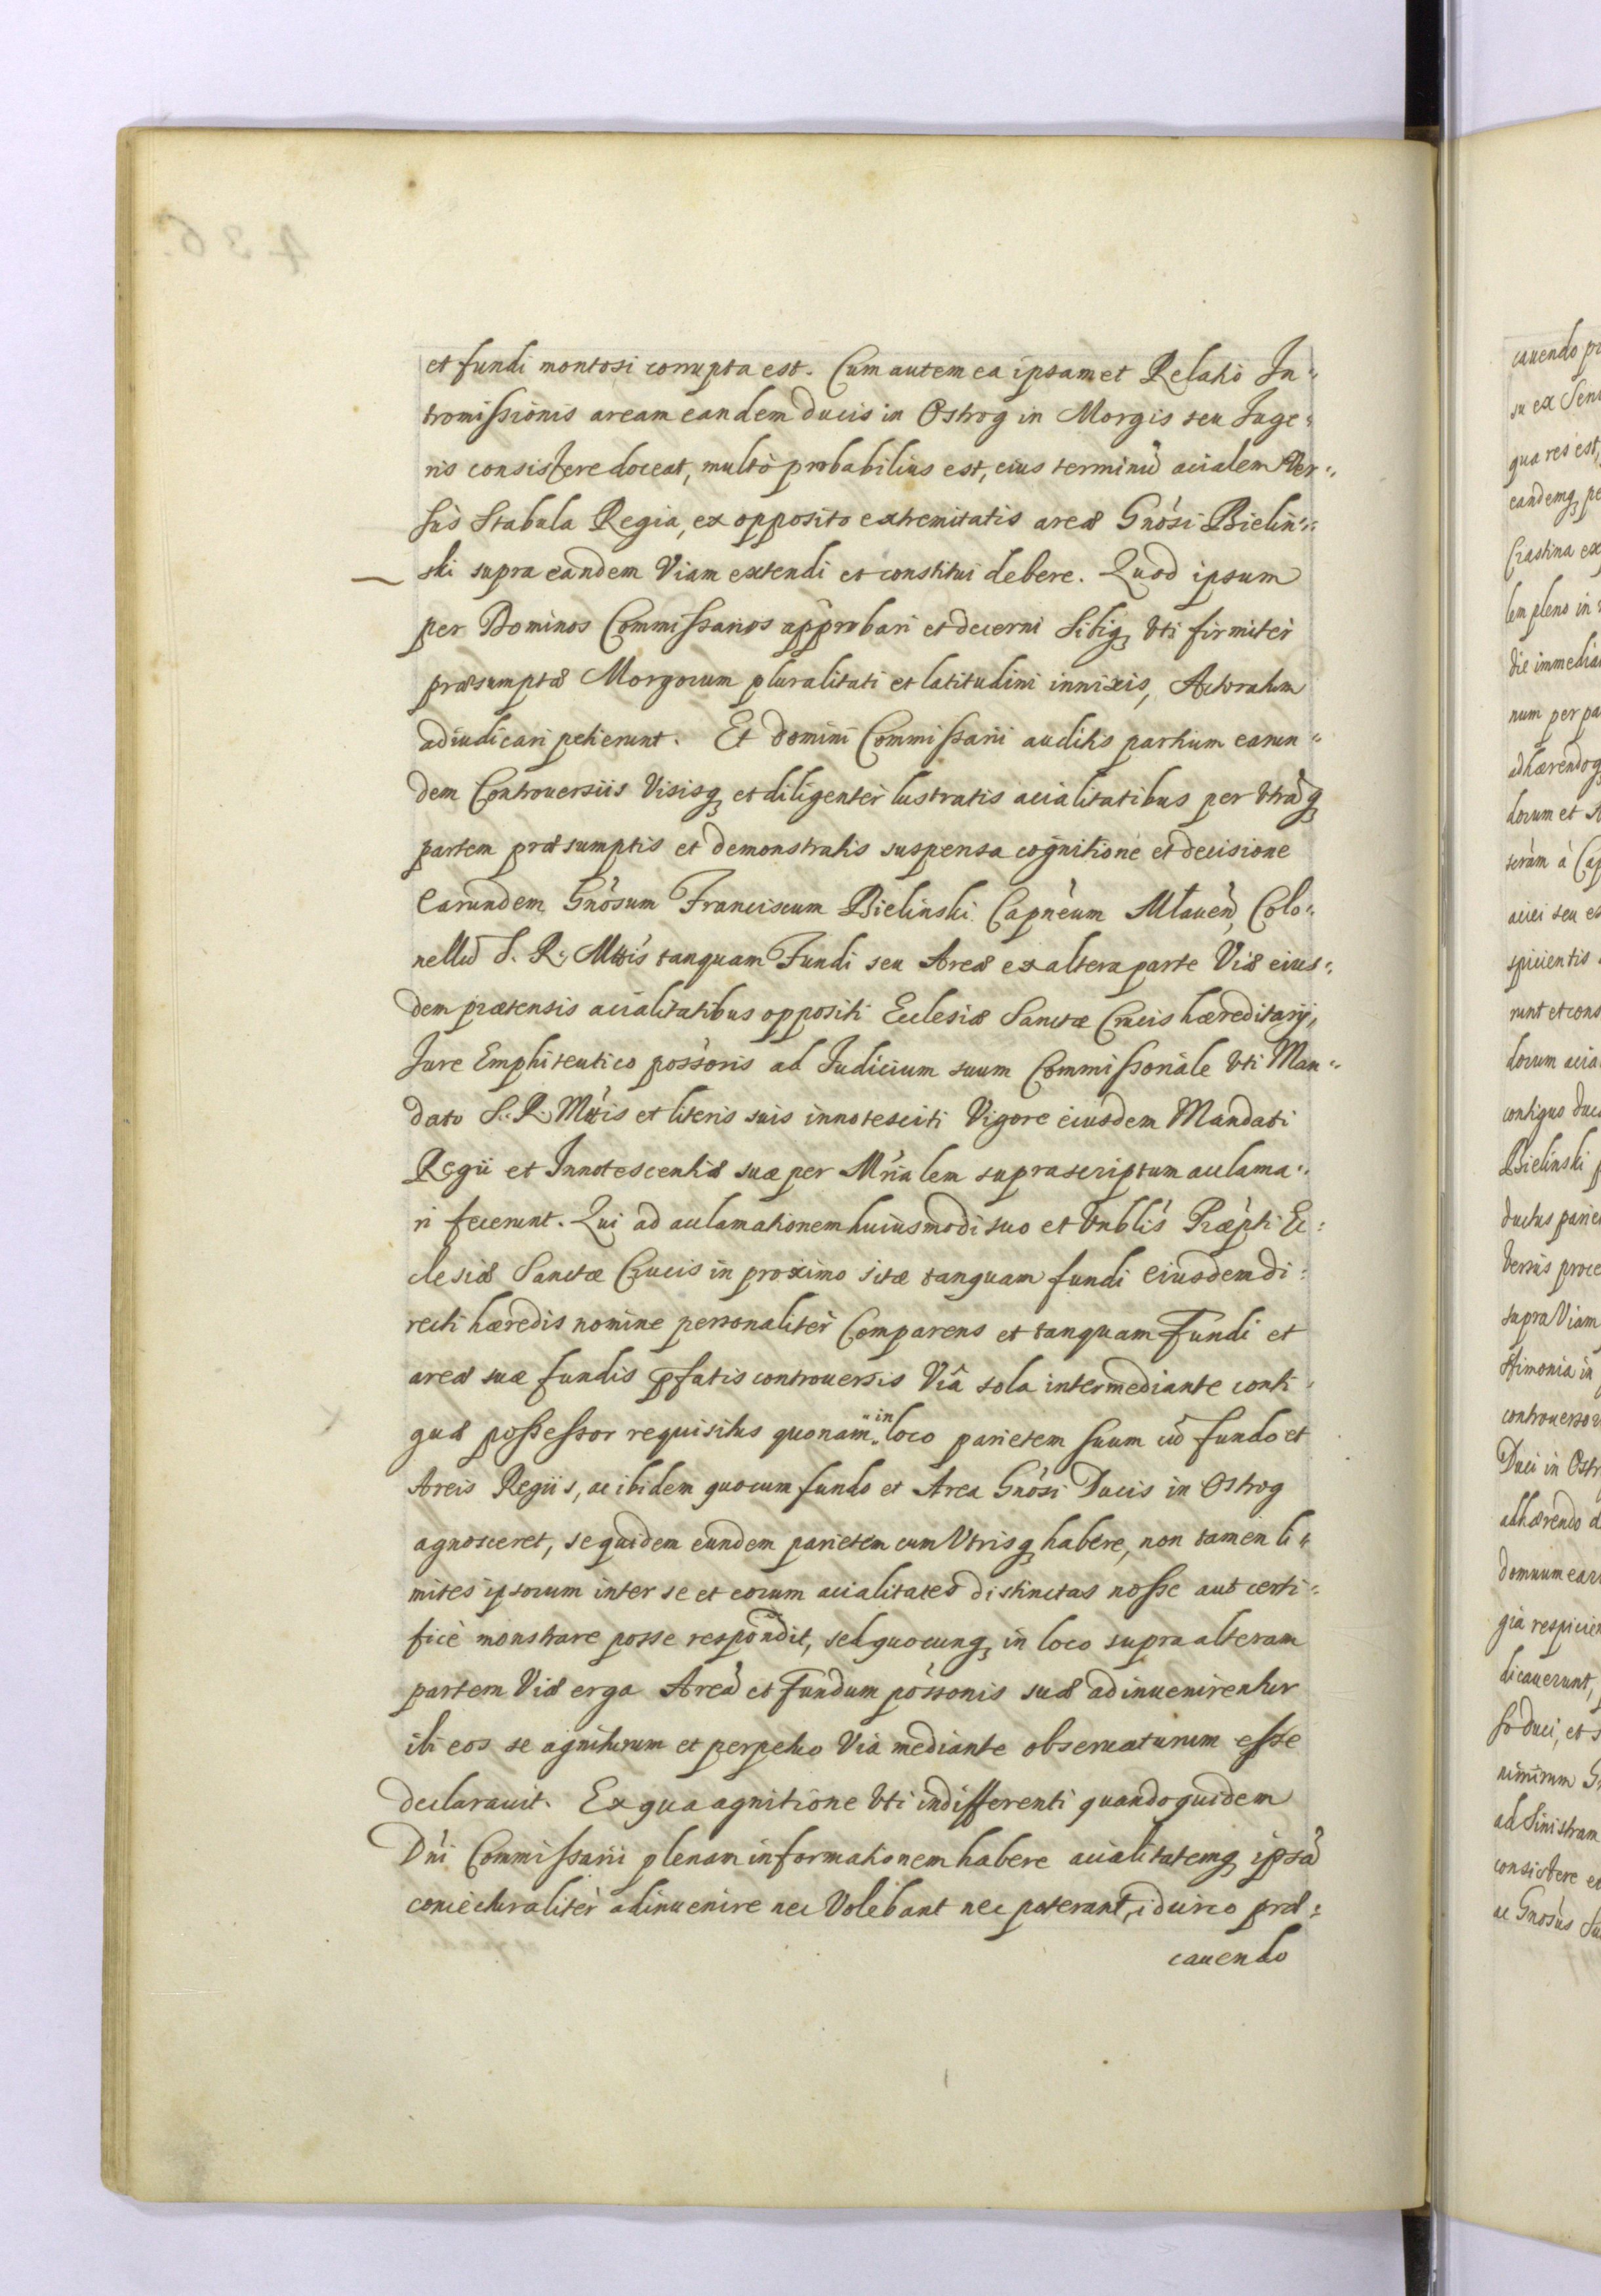 et fundi montosi corrupta est. Cum autem ea ipsamet Relatio In-
tromissionis aream eandem Ducis in Ostrog in Morgis seu Juge-
ris consistere doceat, multò probabilius est, eius terminũ acialem Ver-
sùs Stabula Regia, ex opposito extremitatis areæ Gnosi Bielin-
ski supra eandem Viam extendi et constitui debere. Quod ipsum
per Dominos Commissarios approbari et decerni Sibiq, Vti firmitèr
præsumptæ Morgorum pluralitati et latitudini innixis, Actoratum
adiudicari petierunt. Et domini Commissarii auditis partium earun-
dem Controuersiis Visisq, et diligentèr lustratis acialitatibus per Vtrãq,
partem præsumptis et demonstratis suspensa cognitione et decisione
Earundem Gnosum Franciscum Bielinski Capneum Mlauen, Colo-
nellũ S. R. Mttis tanquam Fundi seu Areæ ex altera parte Viæ eius-
dem prætensis acialitatibus oppositi Ecclesiæ Sanctæ Crucis hæreditarij,
Jure Emphiteutico possoris ad Judicium suum Commissoriale Vti Man-
dato S. R. Mttis et literis suis innotesciti Vigore eiusdem Mandati
Regii et Innotescentiæ suæ per Mrialem suprascriptum acclama-
ri fecerunt. Qui ad acclamationem huiusmodi suo et Vnblis Præpti Ec-
clesiæ Sanctæ Crucis in proximo sitæ tanquam fundi eiusdem di-
recti hæredis nomine personalitèr Comparens et tanquam Fundi et
areæ suæ fundis pfatis controuersis Viâ sola intermediante conti-
guæ possessor requisitus quonam in loco parietem suum cũ fundo et
Areis Regiis, ac ibidem quocum fundo et Area Gnosi Ducis in Ostrog
agnosceret, se quidem eundem parietem cum Vtrisq, habere, non tamen li-
mites ipsorum inter se et eorum acialitates distinctas nosse aut certi-
ficè monstrare posse respondit, sed quocunq, in loco supra alteram
partem Viæ erga Areã et Fundum possonis suæ adinuenirentur
ibi eos se agniturum et perpetuo Via mediante obseruaturum esse
declarauit. Ex qua agnitione Vti indifferenti quandoquidem
Dni Commissarii plenam informationem habere acialitatemq, ipsã
coniecturalitèr adinuenire nec Volebant nec poterant, idcirco præ-
cauendo